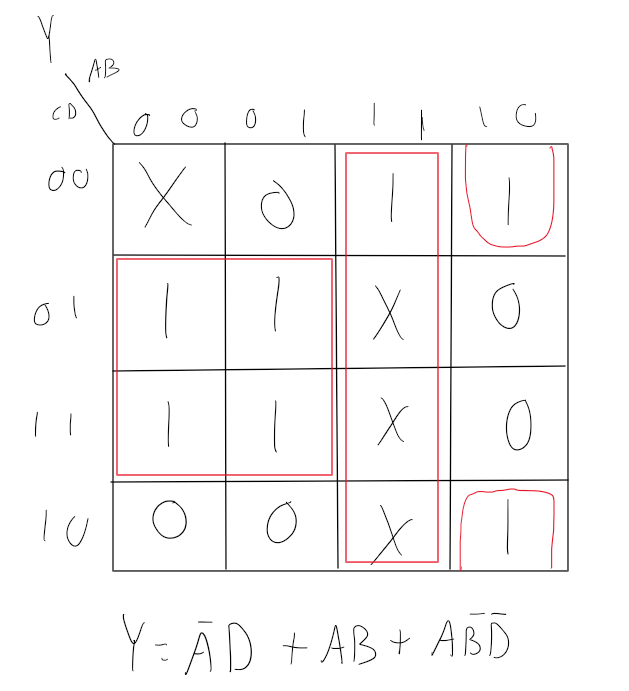 Y
AB
CD 00 01 11 10
00 X 0 1 1
01 1 1 X 0
11 1 1 X 0
10 0 0 X 1
Y = A̅D + AB + AB̅D̅